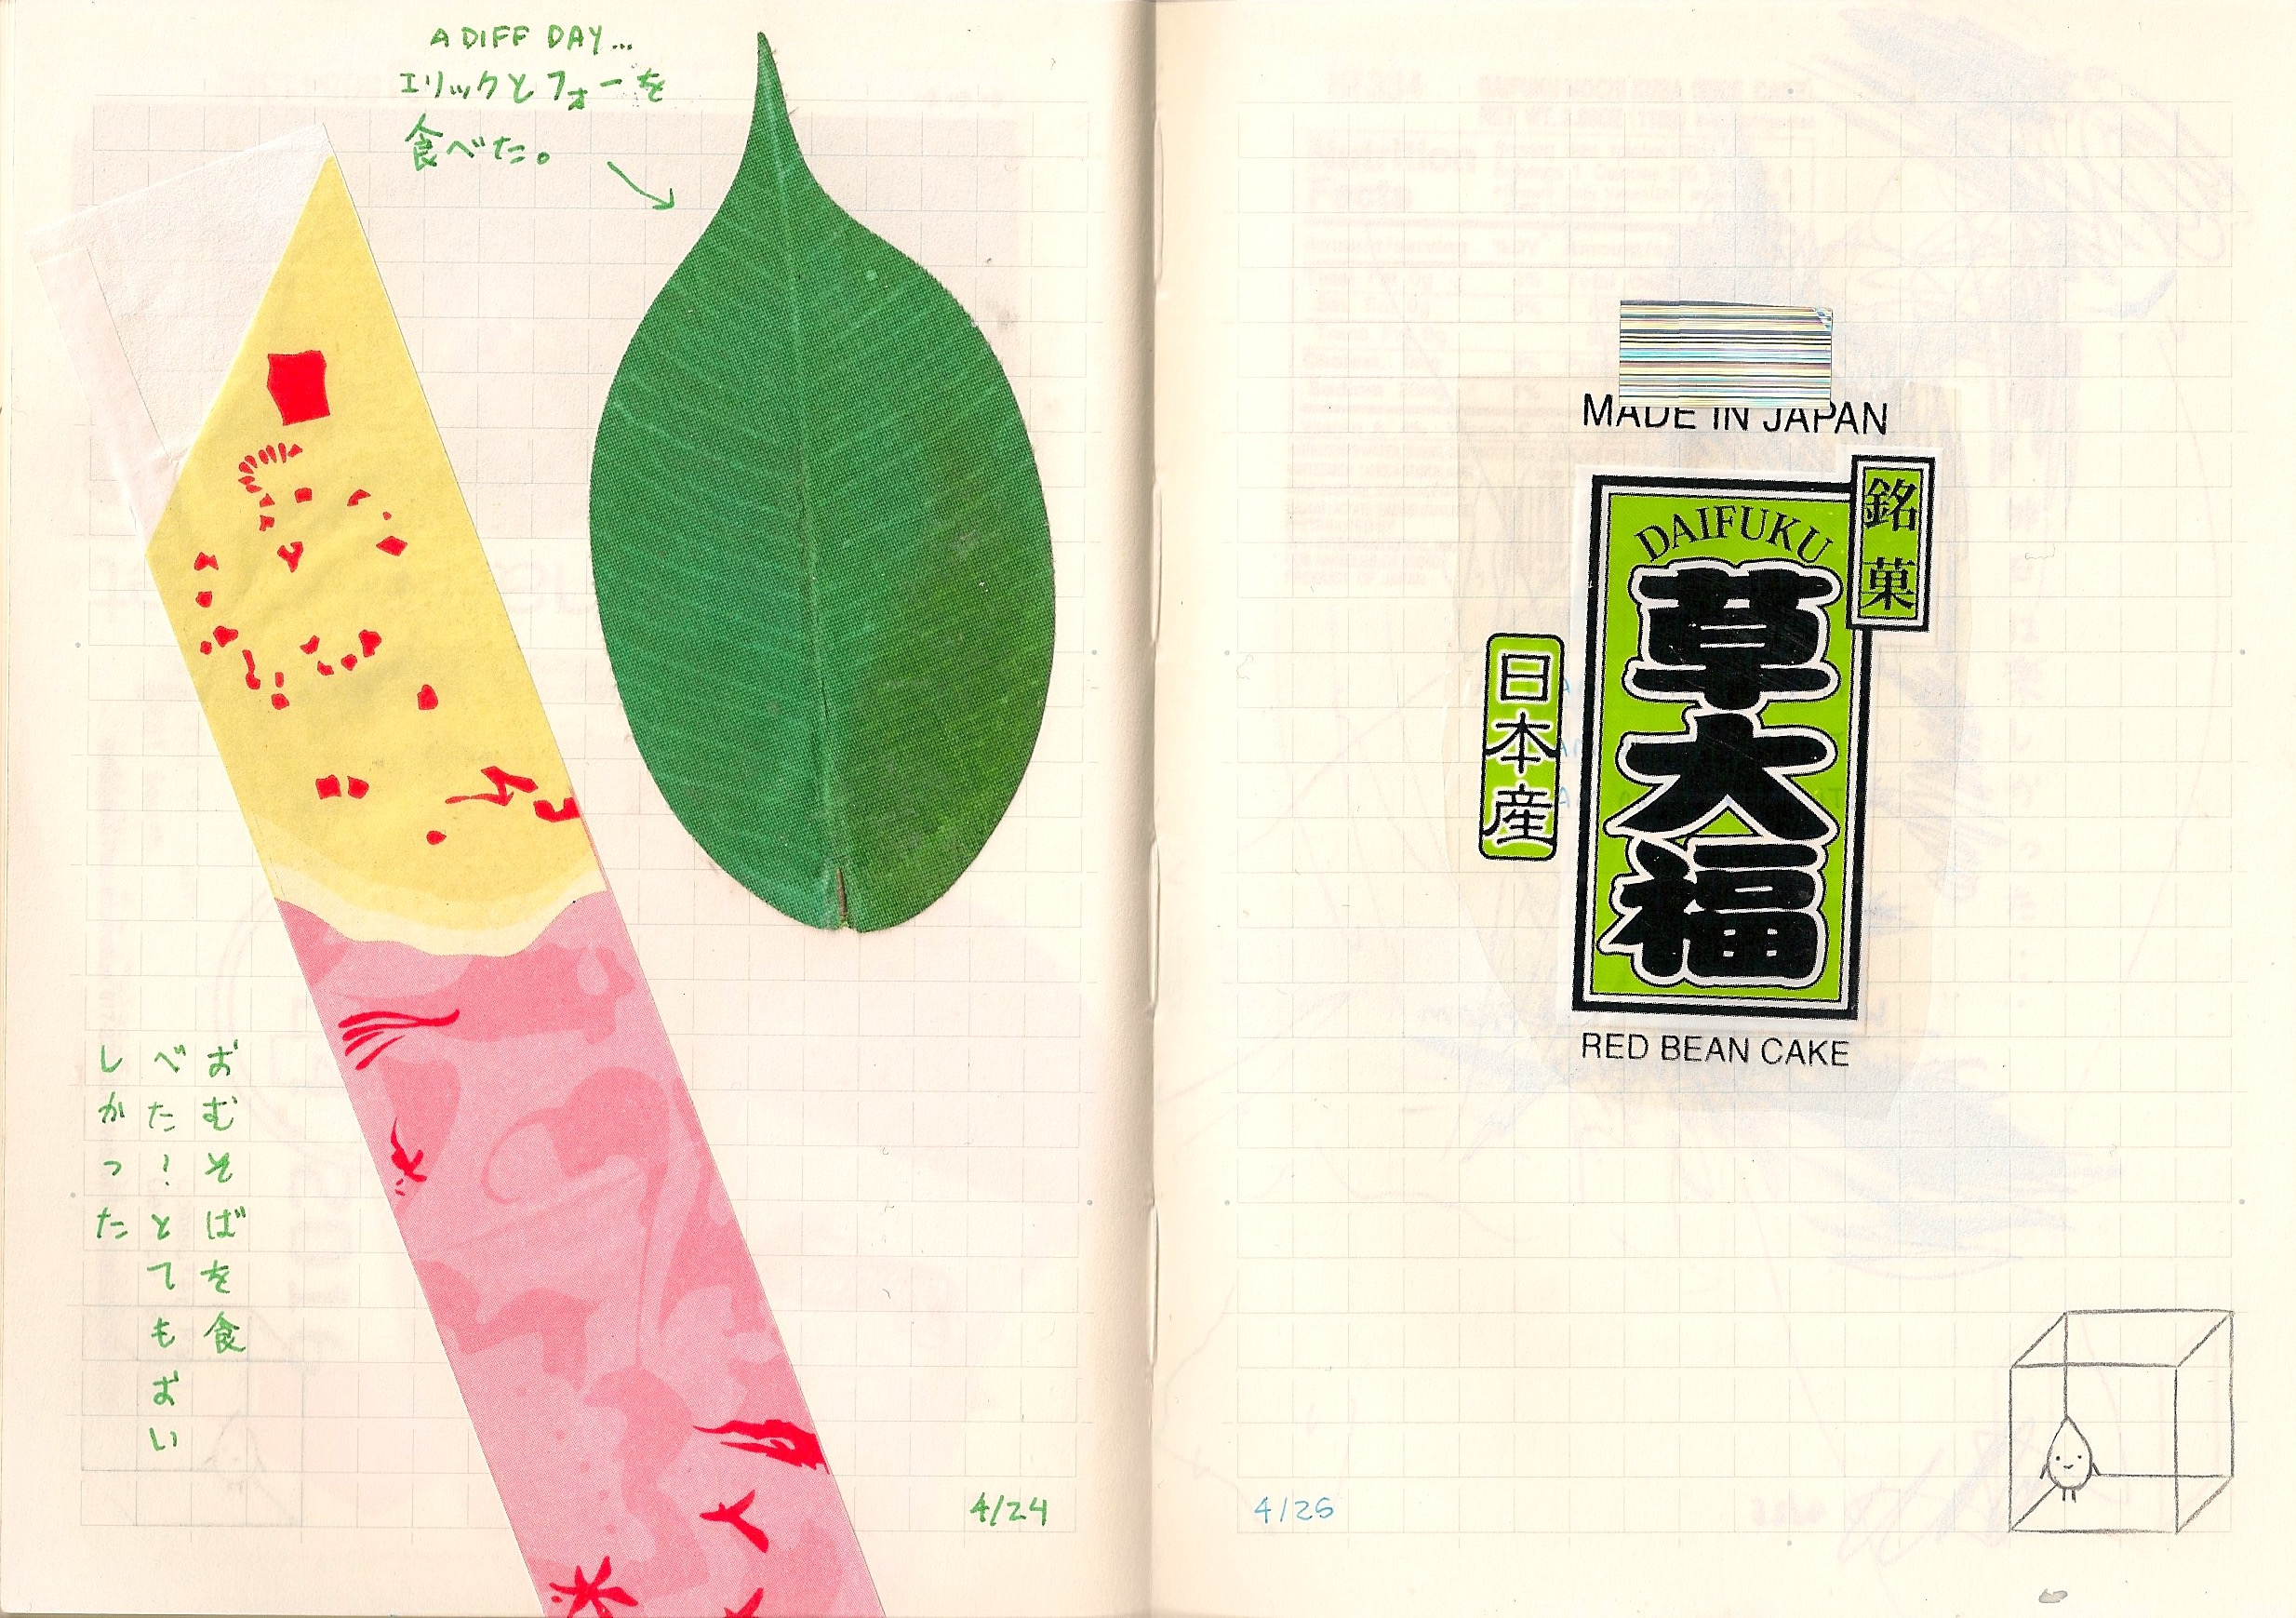 A DIFF DAY...
エリックとフォーを
食べた。
おむそばを食
べた！とてもおい
しかった
4/24
MADE IN JAPAN
銘菓
DAIFUKU
草大福
日本産
RED BEAN CAKE
4/25